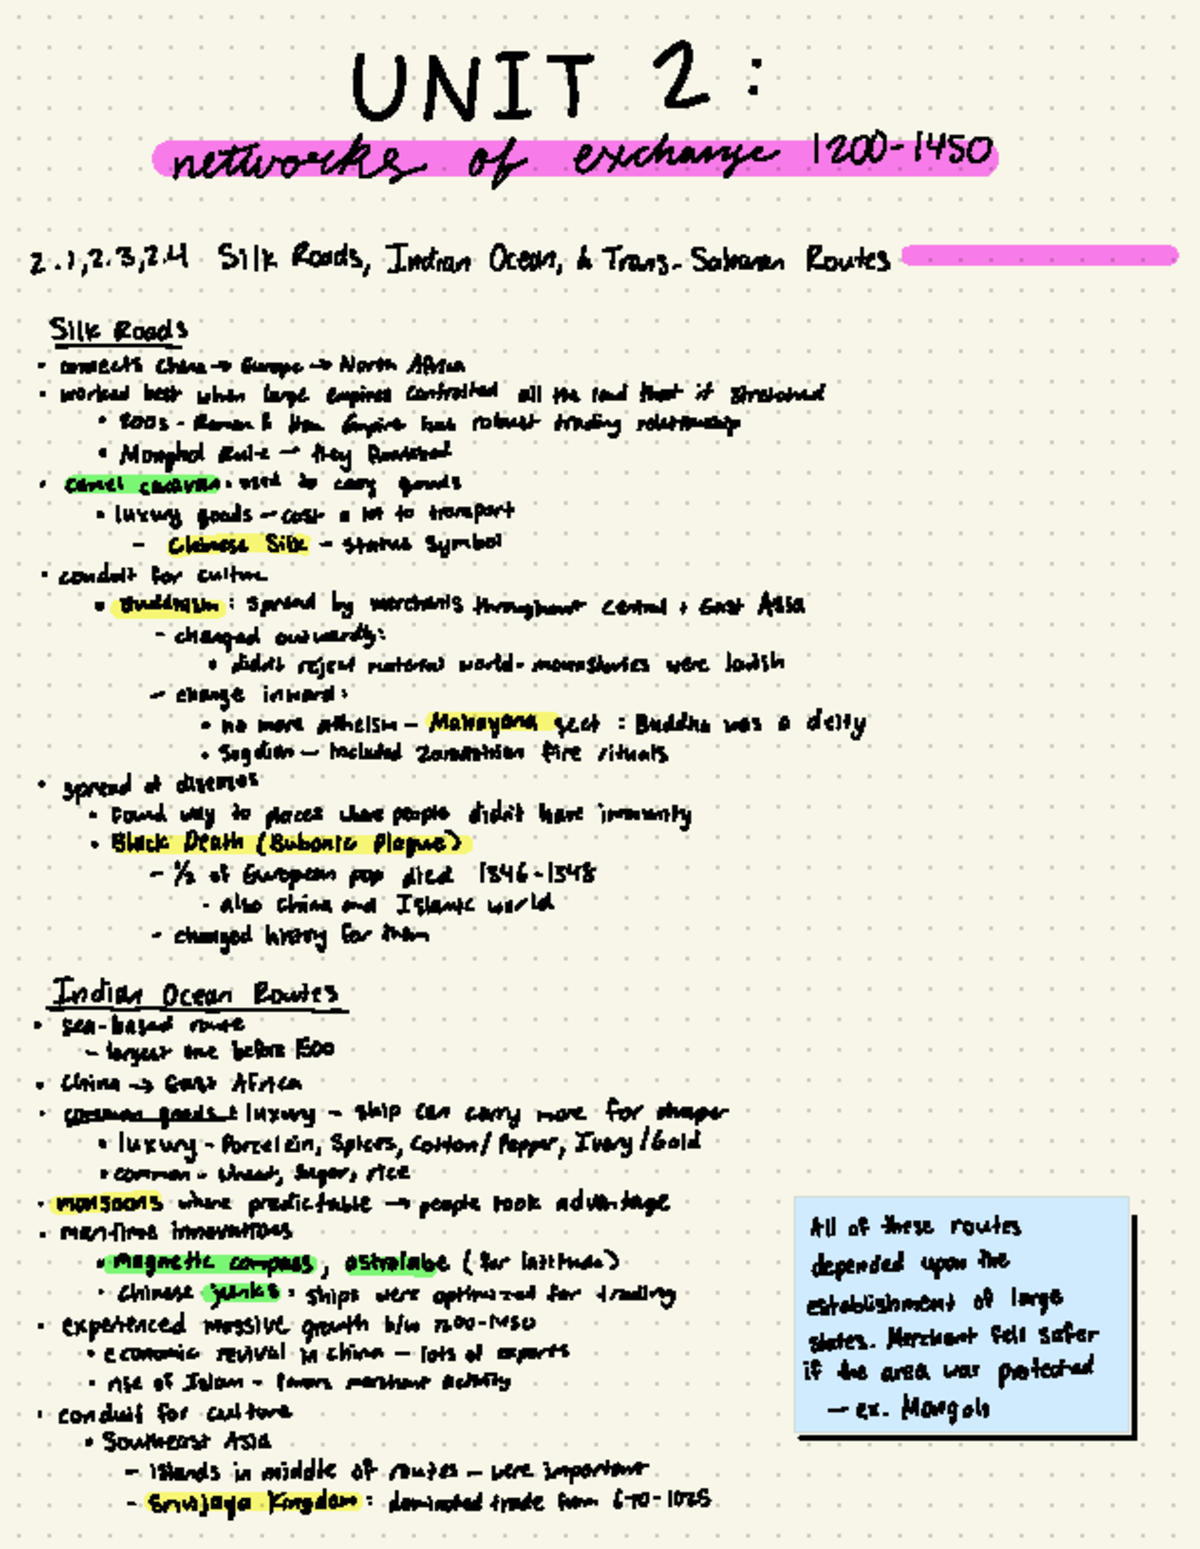 UNIT 2:
networks of exchange 1200-1450
2.1,2.3,2.4 Silk Roads, Indian Ocean, & Trans-Saharan Routes
Silk Roads
• connects China → Europe → North Africa
• worked best when large empires controlled all the land that it stretched
• 200s - Roman & Han Empire has robust trading relationship
• Monghol Rule →
• camel caravan: used to carry goods
• luxury goods - cost a lot to transport
- Chinese Silk - status symbol
• conduit for culture
• Buddhism: spread by merchants throughout Central + East Asia
- changed outwardly:
• didn't reject material world- were lavish
- change inward:
• no more atheism - Mahayana sect : Buddha was a deity
• Sogdian - included fire rituals
• spread of diseases
• found way to places where people didn't have immunity
• Black Death (Bubonic Plague)
- of European pop died 1346-1348
- also China and Islamic world
- changed history for them
Indian Ocean Routes
• sea-based route
- largest one before 1500
• China → East Africa
• common goods + luxury - ship can carry more for
• luxury - Porcelein, Spices, Cotton/Pepper, Ivory/Gold
• common - wheat, sugar, rice
• monsoons where predictable → people took advantage
• maritime innovations
• magnetic compass, astrolabe (for latitude)
• Chinese junks: ships were optimized for trading
• experienced massive growth b/w
• economic revival in china - lots of exports
• rise of Islam - favors merchant activity
• conduit for culture
• Southeast Asia
- islands in middle of routes - were important
- Srivijaya Kingdom: dominated trade from 670-1025
All of these routes
depended upon the
establishment of large
states. Merchant felt safer
if the area was protected
- ex. Mongols